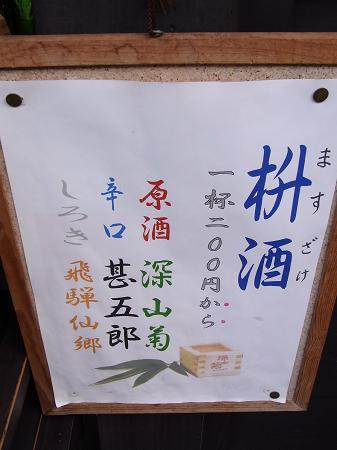 枡酒
ますざけ
一杯二〇〇円から
原酒 深山菊
辛口 甚五郎
しろき 飛騨仙郷